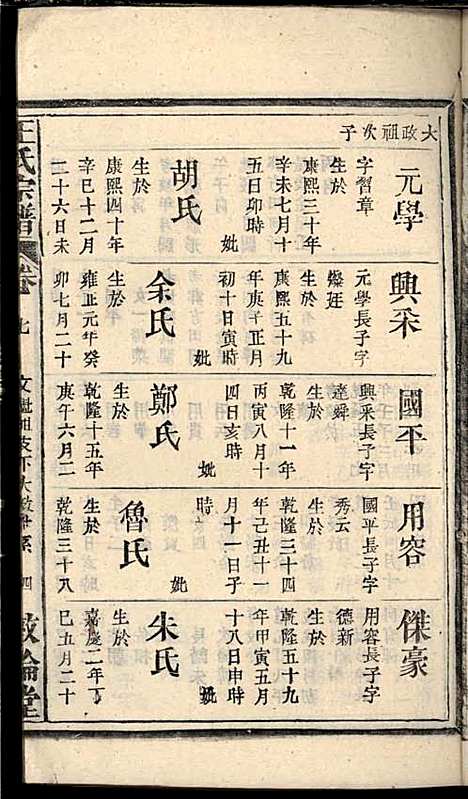 大政祖次子
元學
字習章
生於
康熙三十年
辛未七月十
五日卯時
妣
胡氏
生於
康熙四十年
辛巳十二月
二十六日未
興采
元學長子字
生於
康熙五十九
年庚子正月
初十日寅時
妣
余氏
生於
雍正元年癸
卯七月二十
國平
興采長子字
達舜
生於
乾隆十一年
丙寅八月十
四日亥時
妣
鄭氏
生於
乾隆十五年
庚午六月二
用容
國平長子字
秀云
生於
乾隆三十四
年己丑十一
月十一日子
時
妣
魯氏
生於
乾隆三十八
傑豪
用容長子字
德新
生於
乾隆五十九
年甲寅五月
十八日申時
妣
朱氏
生於
嘉慶二年丁
巳五月二十
王氏宗譜
卷
七
四
敦倫堂